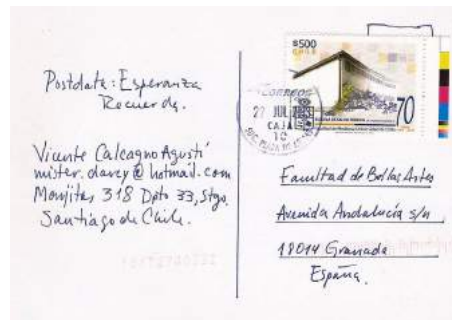 Postdata: Esperanza
Recuerda.
Vicente Calcagno Agustí
mister.davey@hotmail.com
Monjitas 318 Dpto 33, Stgo,
Santiago de Chile.
$500
CHILE
CORREOS
27 JUL
CAJA
10
70
Facultad de Bellas Artes
Avenida Andalucía s/n
18014 Granada
España.